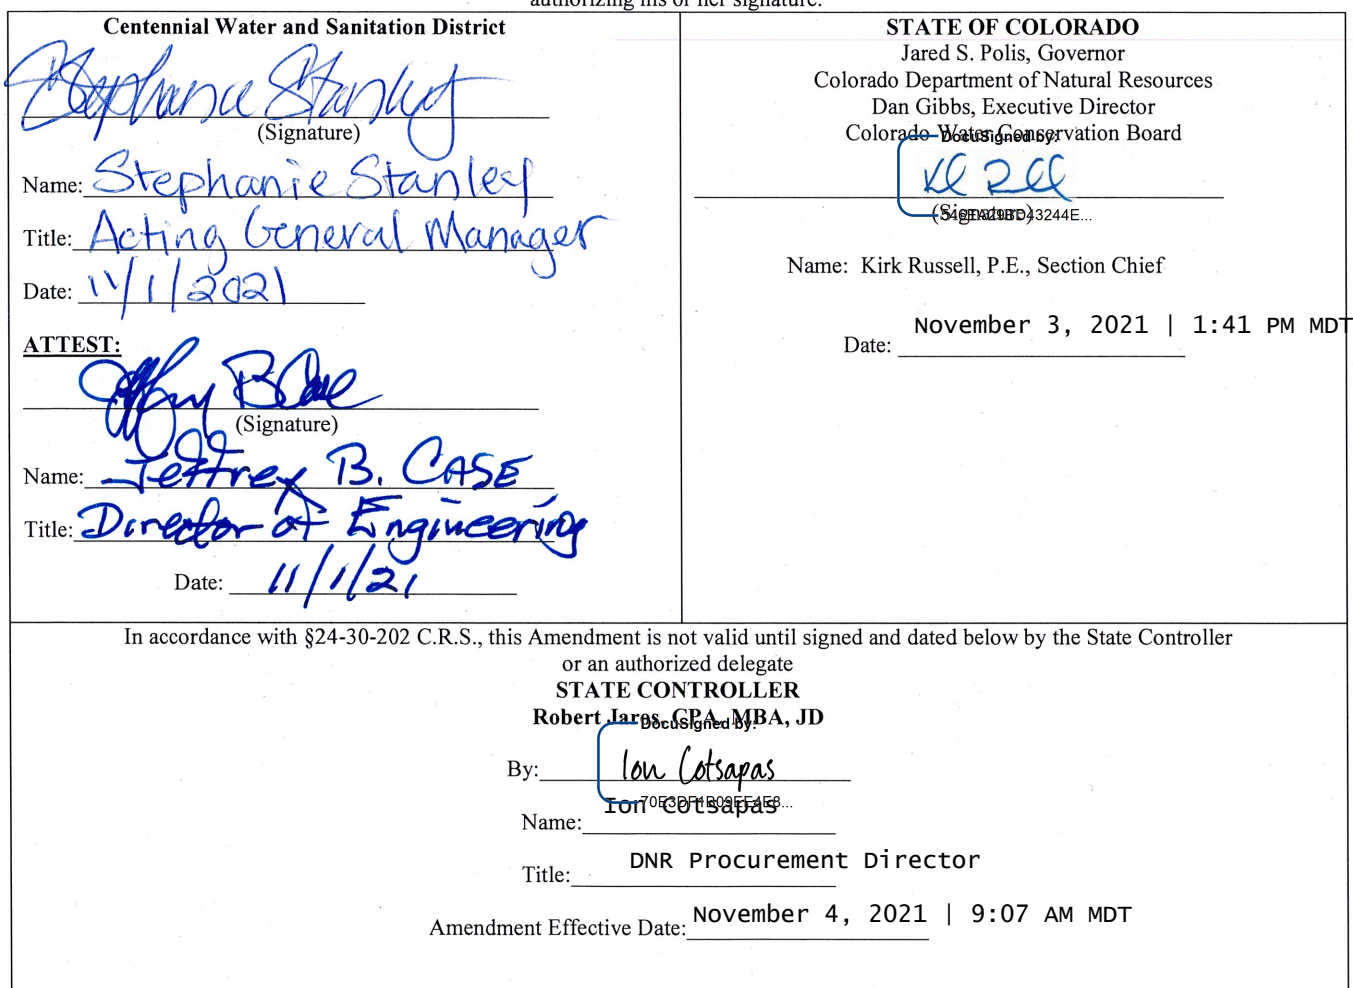 authorizing his or her signature.
Centennial Water and Sanitation District
Stephanie Stanley
(Signature)
Name: Stephanie Stanley
Title: Acting General Manager
Date: 11/1/2021
ATTEST:
Jeffrey B Case
(Signature)
Name: Jeffrey B. CASE
Title: Director of Engineering
Date: 11/1/21
STATE OF COLORADO
Jared S. Polis, Governor
Colorado Department of Natural Resources
Dan Gibbs, Executive Director
Colorado Water Conservation Board
DocuSigned by:
(Signature)
Name: Kirk Russell, P.E., Section Chief
November 3, 2021 | 1:41 PM MDT
Date:
In accordance with §24-30-202 C.R.S., this Amendment is not valid until signed and dated below by the State Controller
or an authorized delegate
STATE CONTROLLER
Robert Jaros, CPA, MBA, JD
DocuSigned by:
By: Ion Cotsapas
Ion Cotsapas
Name:
DNR Procurement Director
Title:
Amendment Effective Date: November 4, 2021 | 9:07 AM MDT